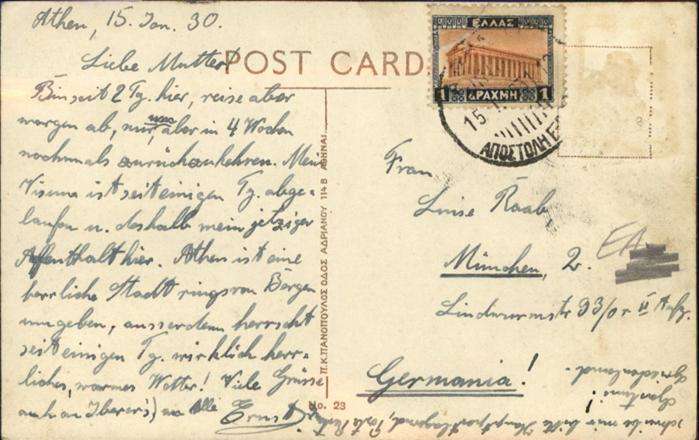 Athen, 15. Jan. 30.
Liebe Mutter!
POST CARD
Bin seit 2 Tg. hier, reise aber
morgen ab, um aber in 4 Wochen
nochmals zurückzukehren. Mein
Visum ist seit einigen Tg. abge-
laufen u. deshalb mein jetziger
Aufenthalt hier. Athen ist eine
herrliche Stadt rings von Bergen
umgeben, ausserdem herrscht
seit einigen Tg. wirklich herr-
liches, warmes Wetter! Viele Grüsse
auch an an Alle Ernst
Π.Κ.ΠΑΝΟΠΟΥΛΟΣ ΟΔΟΣ ΑΔΡΙΑΝΟΥ 114Β ΑΘΗΝΑΙ
No. 23
ΕΛΛΑΣ
1 ΔΡΑΧΜΗ 1
15
ΑΠΟΣΤΟΛΗ
Frau
Luise Raab
München, 2.
Lindwurmstr 33/0 r. II Aufg.
Germania!
schreibe mir bitte Hauptpostlagernd,
Griechenland.